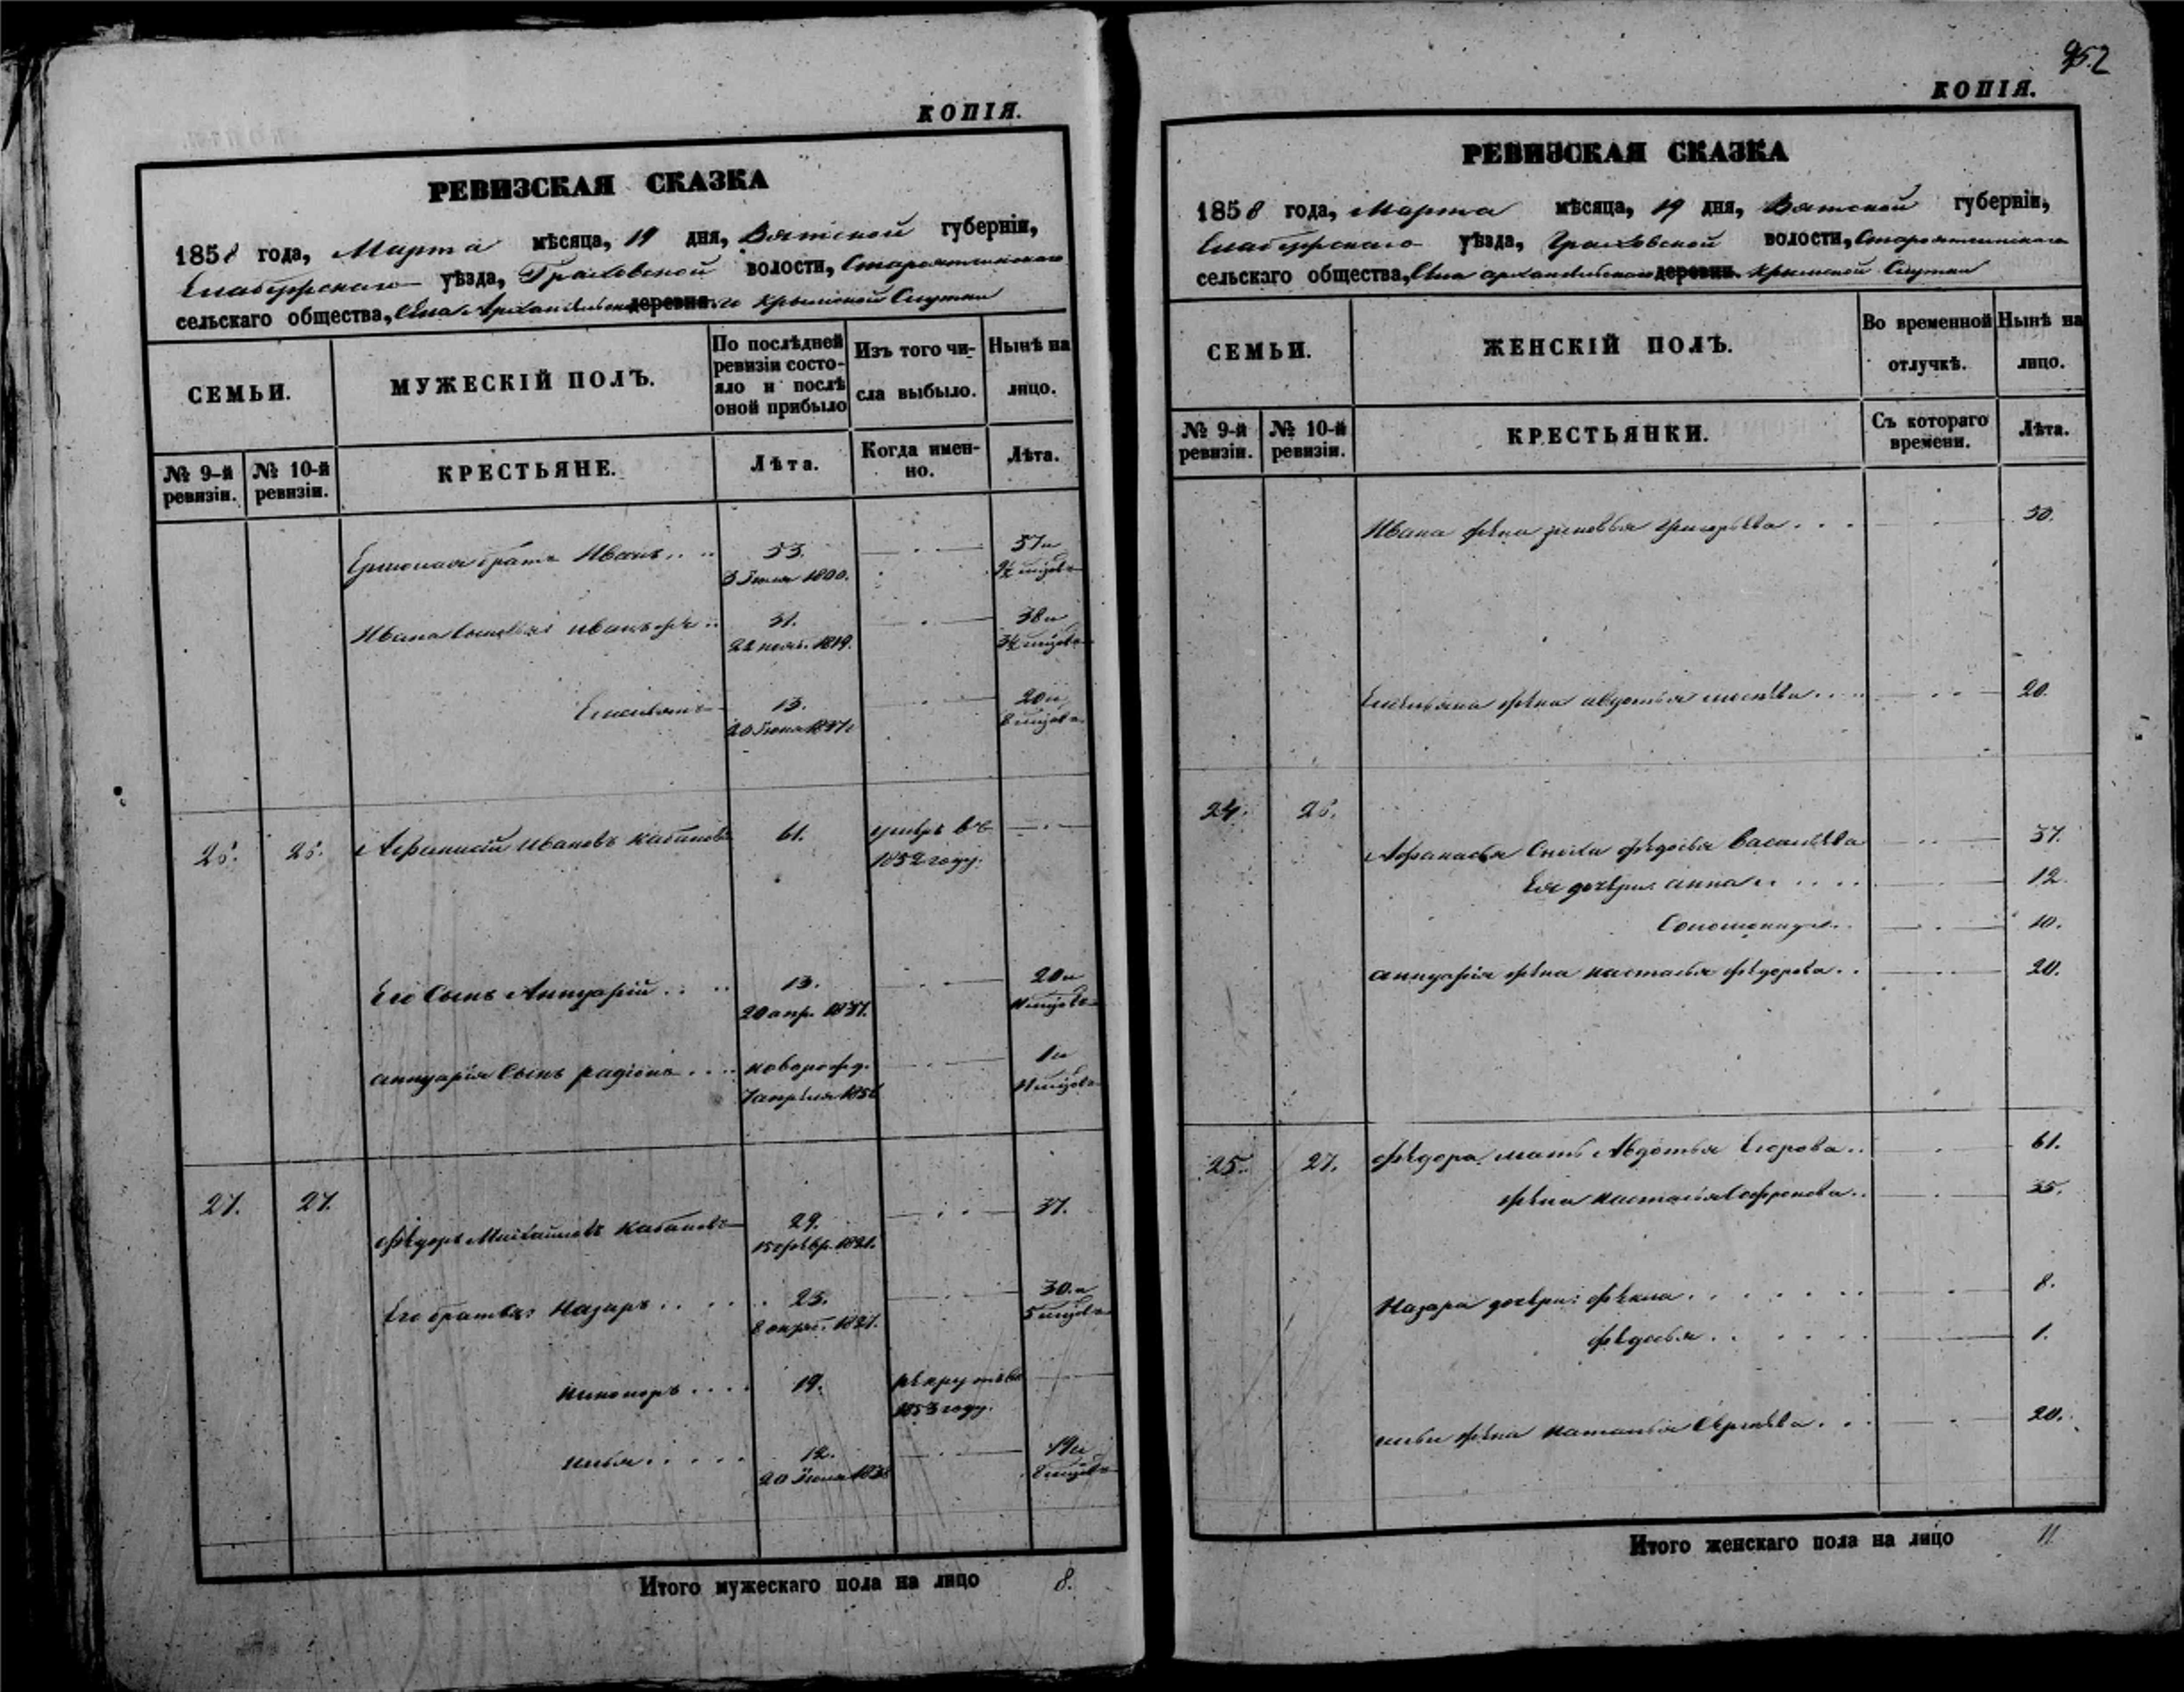 КОПІЯ.
РЕВИЗСКАЯ СКАЗКА
1858 года, Марта мѣсяца, 19 дня, Вятской губерніи,
Елабужскаго уѣзда, Граховской волости, Староятчинскаго
сельскаго общества, Села Архангельскаго деревни Крымской Слутки
СЕМЬИ.
МУЖЕСКІЙ ПОЛЪ.
По послѣдней ревизіи состояло и послѣ оной прибыло
Изъ того числа выбыло.
Нынѣ на лицо.
№ 9-й ревизіи.
№ 10-й ревизіи.
КРЕСТЬЯНЕ.
Лѣта.
Когда именно.
Лѣта.
братъ Иванъ 53. 57 и
1800.
Ивана сыновья: Иванъ 31. 38 и
22 нояб. 1819.
Емельянъ 13. 20 и
20 1837
Афанасій Ивановъ Кабановъ 61. умеръ въ
1852 году.
Его сынъ Аннуарій 13. 20 и
20 апр. 1837.
Аннуарія сынъ Радіонъ новорожд. 1 и
7 апрѣля 1856
27. 27. Ѳедоръ Михайловъ Кабановъ 29. 37.
15 февр. 1821.
Его братья: Назаръ 23. 30 и
8 октяб. 1827. 5 мѣсяцовъ
Никоноръ 19. рекрутъ въ
1853 году.
Илья 12. 19 и
20 1838 8 мѣсяцовъ
Итого мужескаго пола на лицо 8.
952
КОПІЯ.
РЕВИЗСКАЯ СКАЗКА
1858 года, Марта мѣсяца, 19 дня, Вятской губерніи,
Елабужскаго уѣзда, Граховской волости, Староятчинскаго
сельскаго общества, Села Архангельскаго деревни Крымской Слутки
СЕМЬИ.
ЖЕНСКІЙ ПОЛЪ.
Во временной отлучкѣ.
Нынѣ на лицо.
№ 9-й ревизіи.
№ 10-й ревизіи.
КРЕСТЬЯНКИ.
Съ котораго времени.
Лѣта.
Ивана жена Зиновья Григорьева 50.
Емельяна жена Авдотья 20.
24.
Афанасья сноха Федосья Васильева 37.
Ея дочери: Анна 12.
Соломонида 10.
Аннуарія жена Настасья Федорова 20.
25. 27. Ѳедора мать Авдотья Егорова 61.
жена Настасья Софронова 35.
Назара дочери: Фекла 8.
Федосья 1.
Ильи жена Наталья Сергѣева 20.
Итого женскаго пола на лицо 11